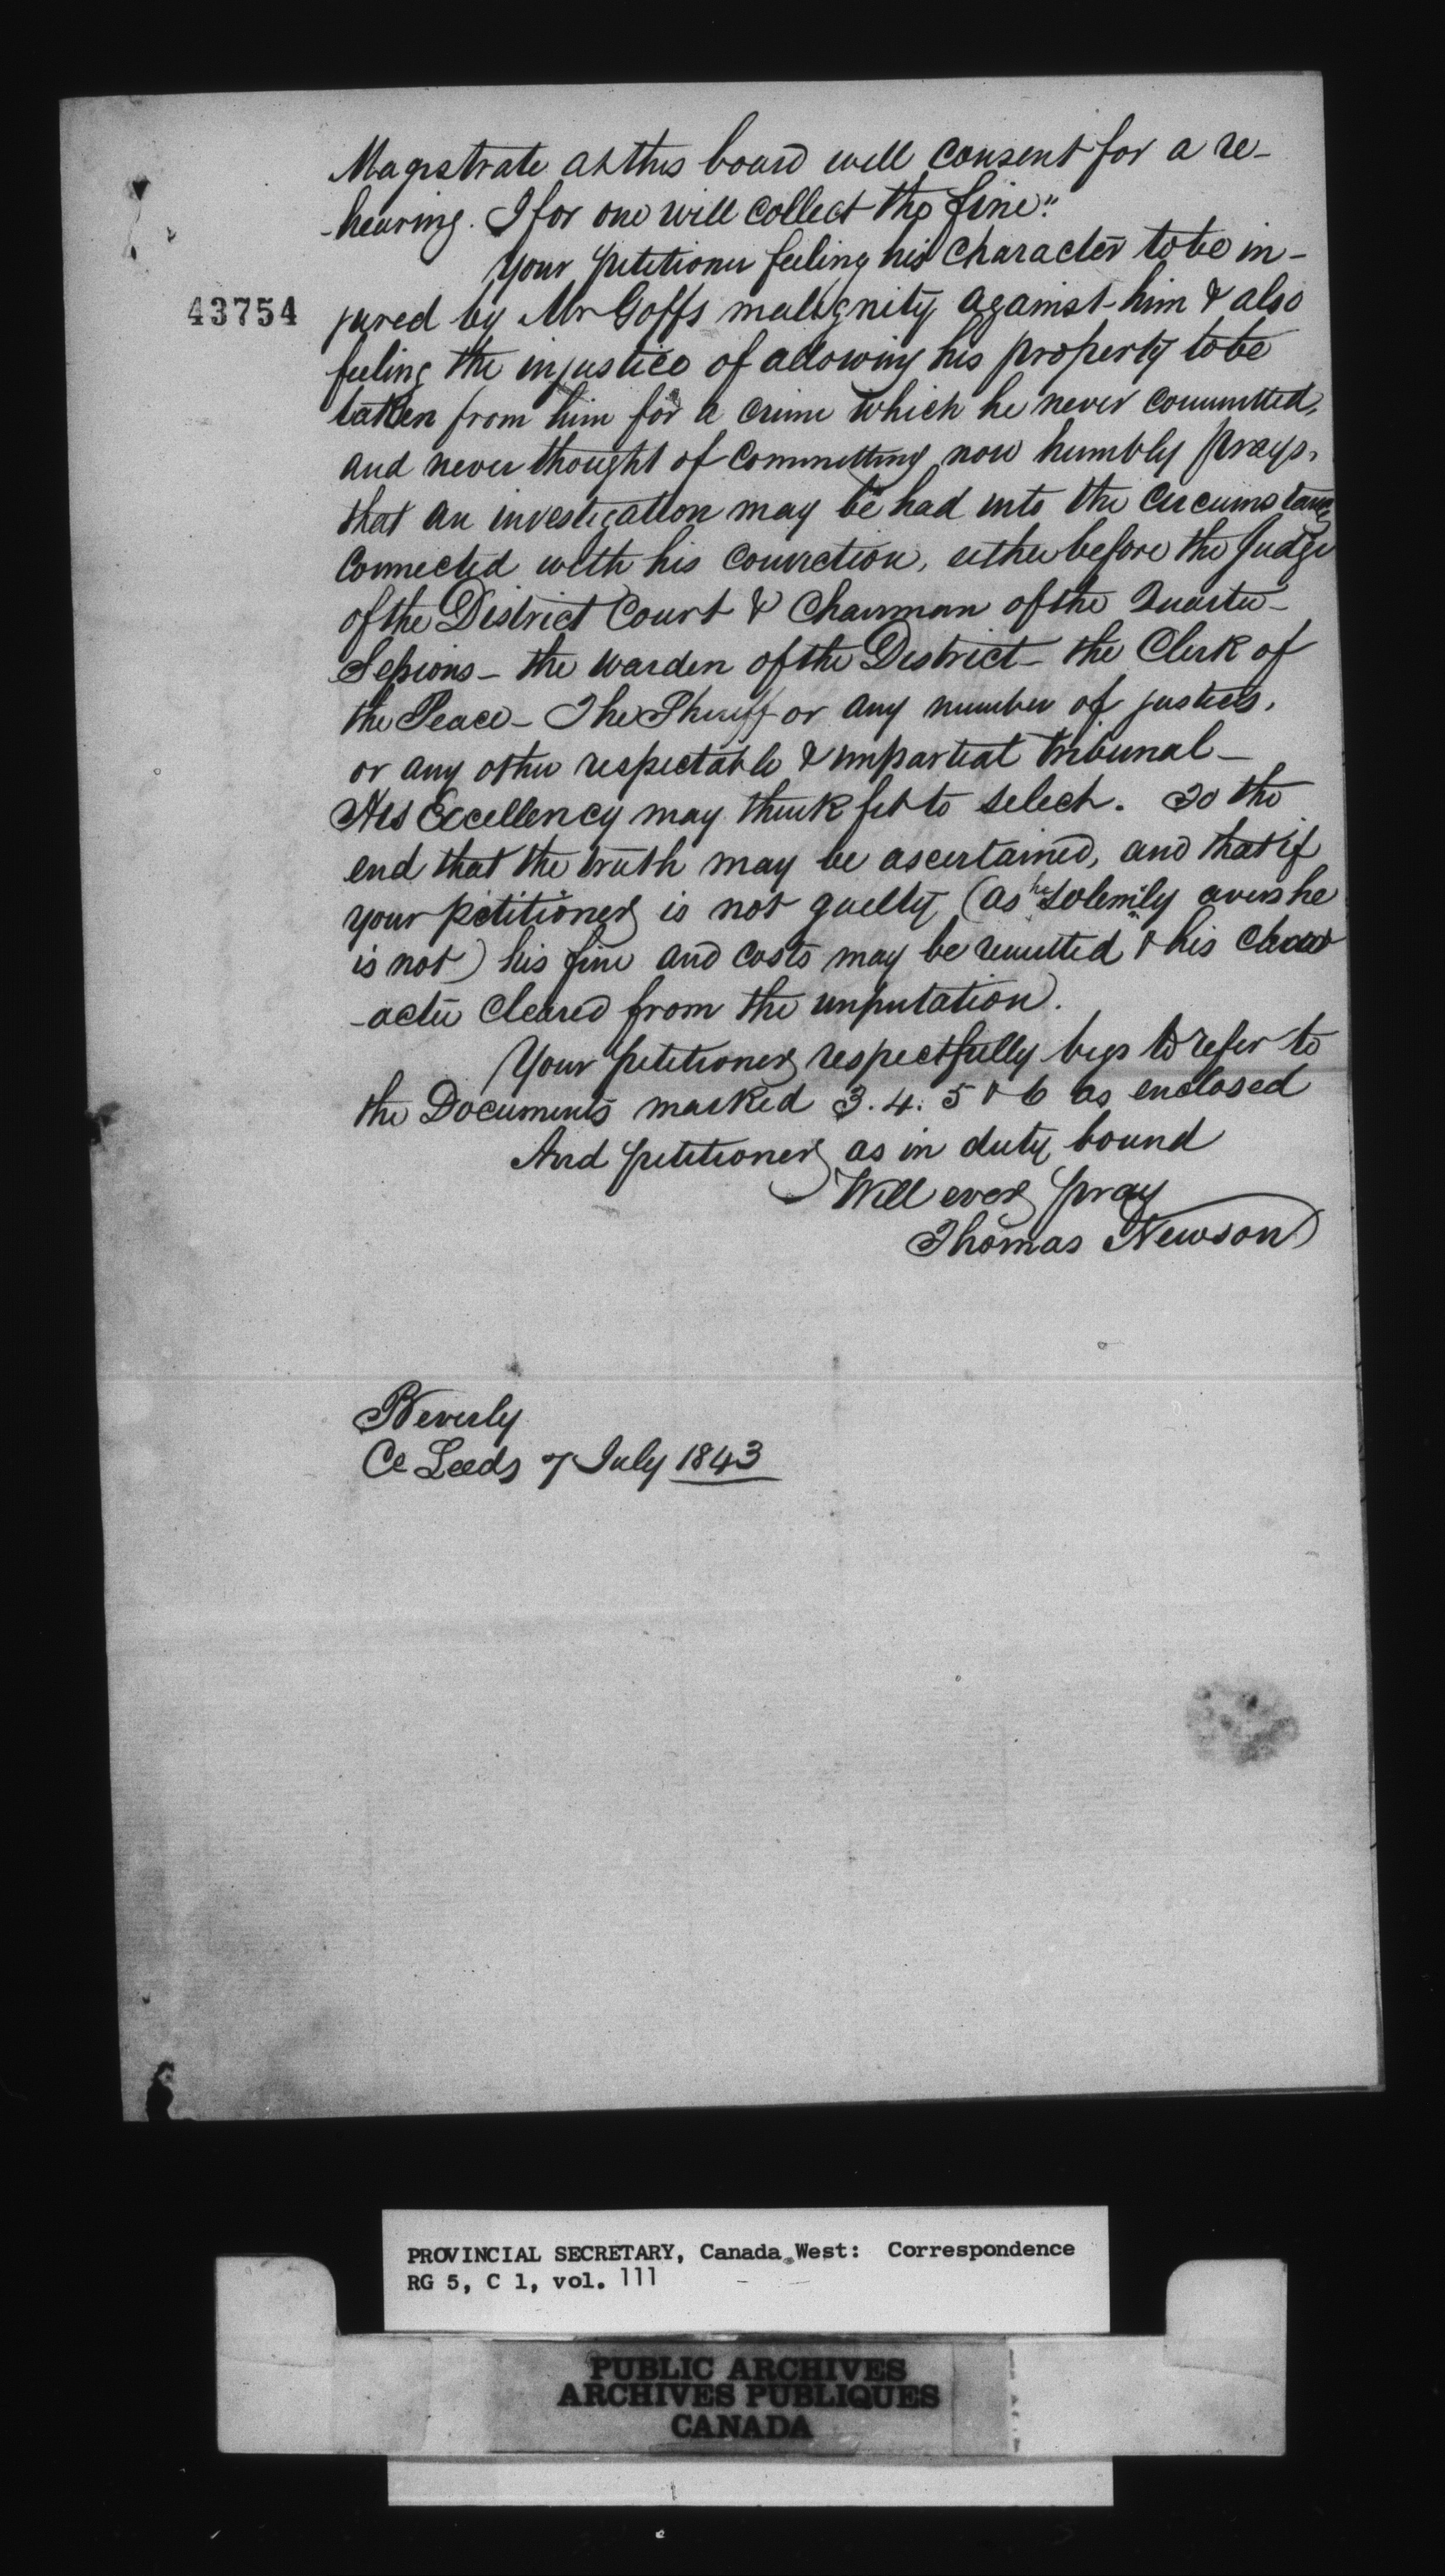 Magistrate at this board will consent for a re-
-hearing. I for one will collect the fine."
Your petitioner feeling his character to be in-
43754
jured by Mr Goffs malignity against him & also
feeling the injustice of allowing his property to be
taken from him for a crime which he never committed,
and never thought of committing now humbly prays,
that an investigation may be had into the circumstances
connected with his conviction, either before the Judge
of the District Court & Chairman of the Quarter-
Sessions - the warden of the District - the Clerk of
the Peace - The Sheriff or any number of justices,
or any other respectable & impartial tribunal -
His Excellency may think fit to select. To the
end that the truth may be ascertained, and that if
your petitioner is not guilty (as he solemnly avers he
is not) his fine and costs may be remitted & his char
-acter cleared from the imputation.
Your petitioner respectfully begs to refer to
the Documents marked 3. 4. 5 & 6 as enclosed
And petitioner as in duty bound
Will ever pray
Thomas Newson
Beverly
Co Leeds 7 July 1843
PROVINCIAL SECRETARY, Canada West: Correspondence
RG 5, C 1, vol. 111
PUBLIC ARCHIVES
ARCHIVES PUBLIQUES
CANADA